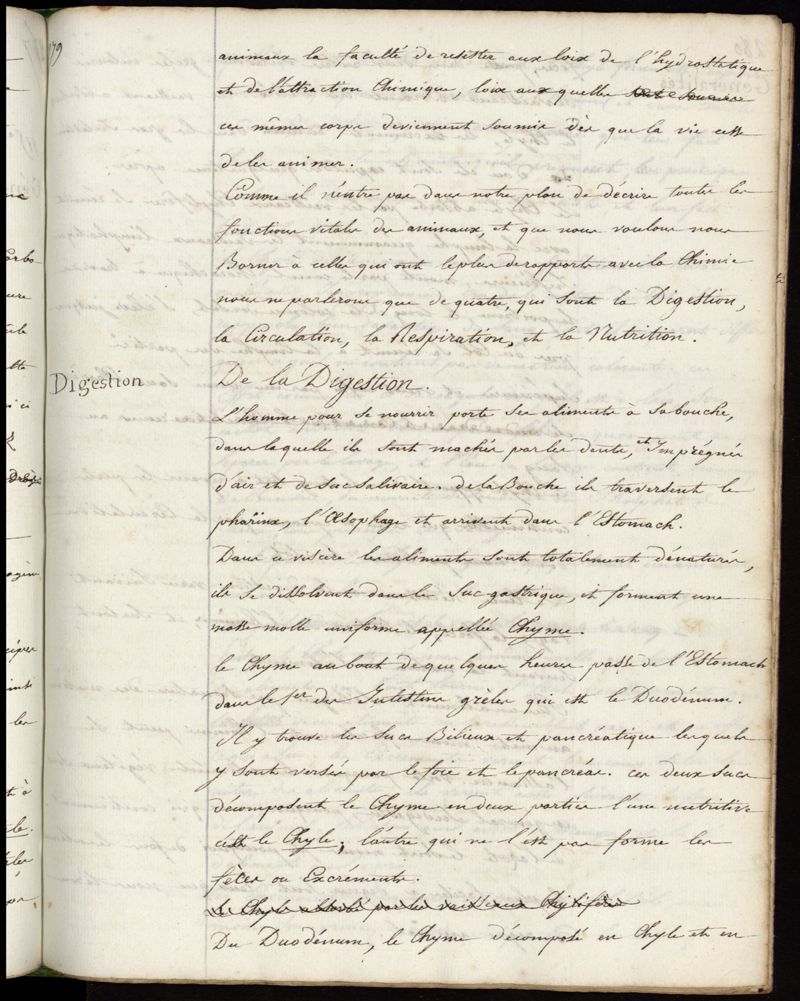 179
animaux la faculté de resister aux loix de l'hydrostatique
et de l'attraction Chimique, loix aux quelles
ces mêmes corps deviennent soumis dès que la vie cesse
de les animer.
Comme il n'entre pas dans notre plan de décrire toutes les
fonctions vitales des animaux, et que nous voulons nous
Borner à celles qui ont le plus de rapports avec la Chimie
nous ne parlerons que de quatre, qui sont la Digestion,
la Circulation, la Respiration, et la Nutrition.
Digestion
De la Digestion.
L'homme pour se nourrir porte ses aliments à sa bouche,
dans laquelle ils sont machés par les dents, et Imprégnés
d'air et de suc salivaire. de la Bouche ils traversent le
pharinx, l'Œsophage et arrivent dans l'Estomach.
Dans ce viscère les aliments sont totalement dénaturés,
ils se dissolvent dans le suc gastrique, et forment une
masse molle uniforme appellée Chyme.
le Chyme au bout de quelques heures passe de l'Estomach
dans le 1er des Intestins grèles qui est le Duodénum.
Il y trouve les sucs Bilieux et pancréatique lesquels
y sont versés par le foie et le pancréas. ces deux sucs
décomposent le Chyme en deux parties l'une nutritive
c'est le Chyle, l'autre qui ne l'est pas forme les
fèces ou Excréments.
le Chyle absorbé par les vaisseaux Chylifères
Du Duodénum, le Chyme décomposé en Chyle et en